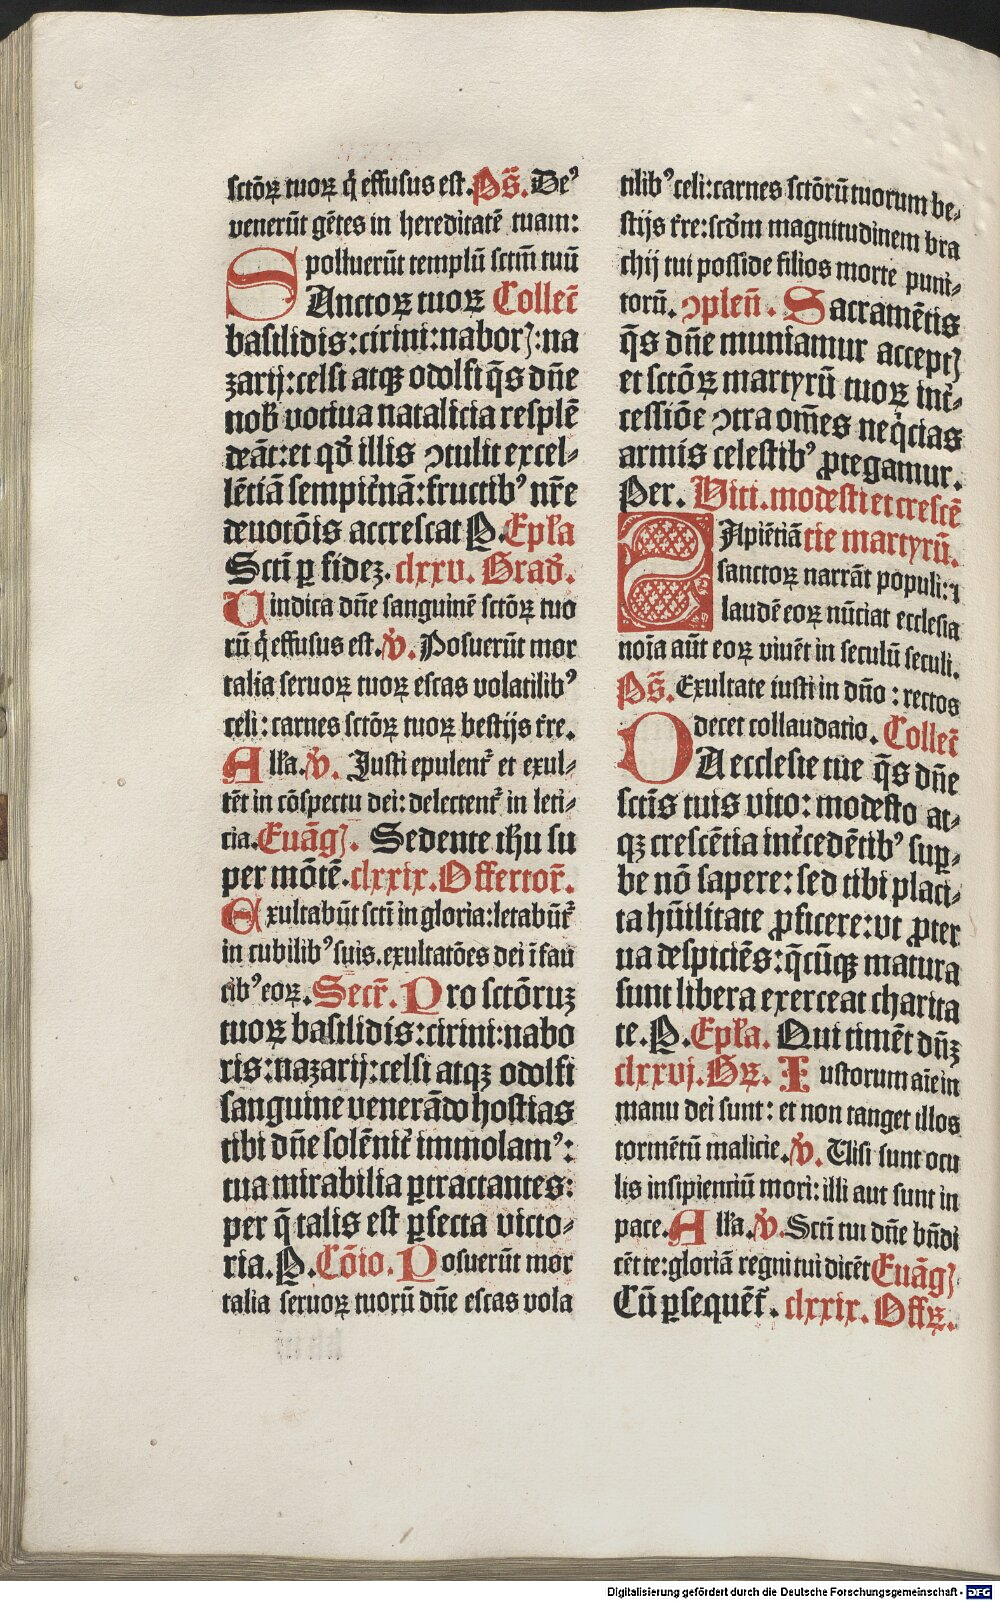 sctōꝝ tuoꝝ q̇ effusus est. Ps̄. Deꝰ
venerūt gētes in hereditatē tuam:
polluerūt templū sctm̄ tuū
SAnctoꝝ tuoꝝ Collect̄
basilidis: cirini: naborꝭ: na
zarij: celsi atqꝫ odolfi q̄s dn̄e
nob̄ votiua natalicia resplē
deāt: et qd̄ illis ꝯtulit excel⸗
lētiā sempit̄nā: fructibꝰ nr̄e
deuotōis accrescat P. Ep̄la
Scti ꝑ fidez. clxxv. Grad̄.
Uindica dn̄e sanguinē sctōꝝ tuo
rū q̇ effusus est. ꝟ. Posuerūt mor
talia seruoꝝ tuoꝝ escas volatilibꝰ
celi: carnes sctōꝝ tuoꝝ bestijs t̄re.
All'a. ꝟ. Justi epulent᷑ et exul⸗
tēt in cōspectu dei: delectent᷑ in leti⸗
cia. Euāgꝭ. Sedente ih̄u su
per mōtē. clxxix. Offertor̄.
Exultabūt scti in gloria: letabūt᷑
in cubilibꝰ suis. exultatōes dei ī fau
cibꝰ eoꝝ. Secr̄. Pro sctōruꝫ
tuoꝝ basilidis: cirini: nabo
ris: nazarij: celsi atqꝫ odolfi
sanguine venerādo hostias
tibi dn̄e solēnit̄ immolamꝰ:
tua mirabilia ꝑtractantes:
per q̄ talis est ꝑfecta victo⸗
ria. P. Cōio. Posuerūt mor
talia seruoꝝ tuorū dn̄e escas vola
tilibꝰ celi: carnes sctōrū tuorum be⸗
stijs t̄re: scdm̄ magnitudinem bra
chij tui posside filios morte puni⸗
torū. ꝯplen̄. Sacramētis
q̄s dn̄e muniamur acceptꝭ
et sctōꝝ martyrū tuoꝝ int̄⸗
cessiōe ꝯtra om̄es neq̇cias
armis celestibꝰ ꝓtegamur.
Per. Viti. modesti et crescē
SApiētiā tie martyrū.
sanctoꝝ narrāt populi: ⁊
laudē eoꝝ nūciat ecclesia
noīa aūt eoꝝ viuēt in seculū seculi.
Ps̄. Exultate iusti in dn̄o: rectos
decet collaudatio. Collect̄
DA ecclesie tue q̄s dn̄e
sctīs tuis vito: modesto at⸗
qꝫ crescētia int̄cedētibꝰ suꝑ⸗
be nō sapere: sed tibi placi⸗
ta hūilitate ꝓficere: vt ꝓter
ua despiciēs: q̄cūqꝫ matura
sunt libera exerceat charita
te. P. Ep̄la. Qui timēt dn̄ꝫ
clxxvj. Gꝝ. Iustorum aīe in
manu dei sunt: et non tanget illos
tormētū malicie. ꝟ. Uisi sunt ocu
lis insipientiū mori: illi aut sunt in
pace. All'a. ꝟ. Scti tui dn̄e bn̄di
cēt te: gloriā regni tui dicēt Euāgꝭ
Cū ꝑsequēt᷑. clxxix. Offꝝ.
Digitalisierung gefördert durch die Deutsche Forschungsgemeinschaft - DFG